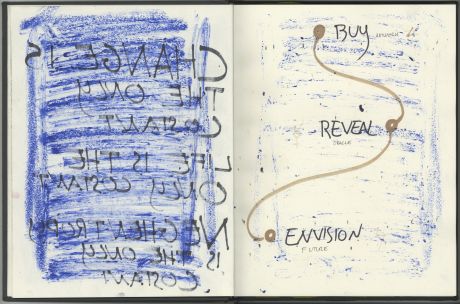 CHANGE IS
THE ONLY
COSTANT
LIFE IS THE
ONLY COSTANT
IS THE ONLY
COSTANT
BUY
REVEAL
ENVISION
FUTURE